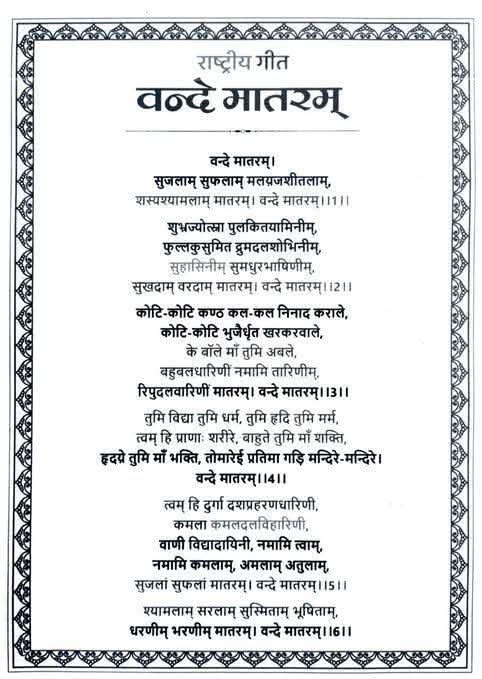 राष्ट्रीय गीत
वन्दे मातरम्
वन्दे मातरम्।
सुजलाम् सुफलाम् मलयजशीतलाम्,
शस्यश्यामलाम् मातरम्। वन्दे मातरम्।।1।।
शुभ्रज्योत्स्ना पुलकितयामिनीम्,
फुल्लकुसुमित द्रुमदलशोभिनीम्,
सुहासिनीम् सुमधुरभाषिणीम्,
सुखदाम् वरदाम् मातरम्। वन्दे मातरम्।।2।।
कोटि-कोटि कण्ठ कल-कल निनाद कराले,
कोटि-कोटि भुजैर्धृत खरकरवाले,
के बॉले माँ तुमि अबले,
बहुबलधारिणीं नमामि तारिणीम्,
रिपुदलवारिणीं मातरम्। वन्दे मातरम्।।3।।
तुमि विद्या तुमि धर्म, तुमि हृदि तुमि मर्म,
त्वम् हि प्राणाः शरीरे, बाहुते तुमि माँ शक्ति,
हृदय़े तुमि माँ भक्ति, तोमारेई प्रतिमा गड़ि मन्दिरे-मन्दिरे।
वन्दे मातरम्।।4।।
त्वम् हि दुर्गा दशप्रहरणधारिणी,
कमला कमलदलविहारिणी,
वाणी विद्यादायिनी, नमामि त्वाम्,
नमामि कमलाम्, अमलाम् अतुलाम्,
सुजलां सुफलां मातरम्। वन्दे मातरम्।।5।।
श्यामलाम् सरलाम् सुस्मिताम् भूषिताम्,
धरणीम् भरणीम् मातरम्। वन्दे मातरम्।।6।।